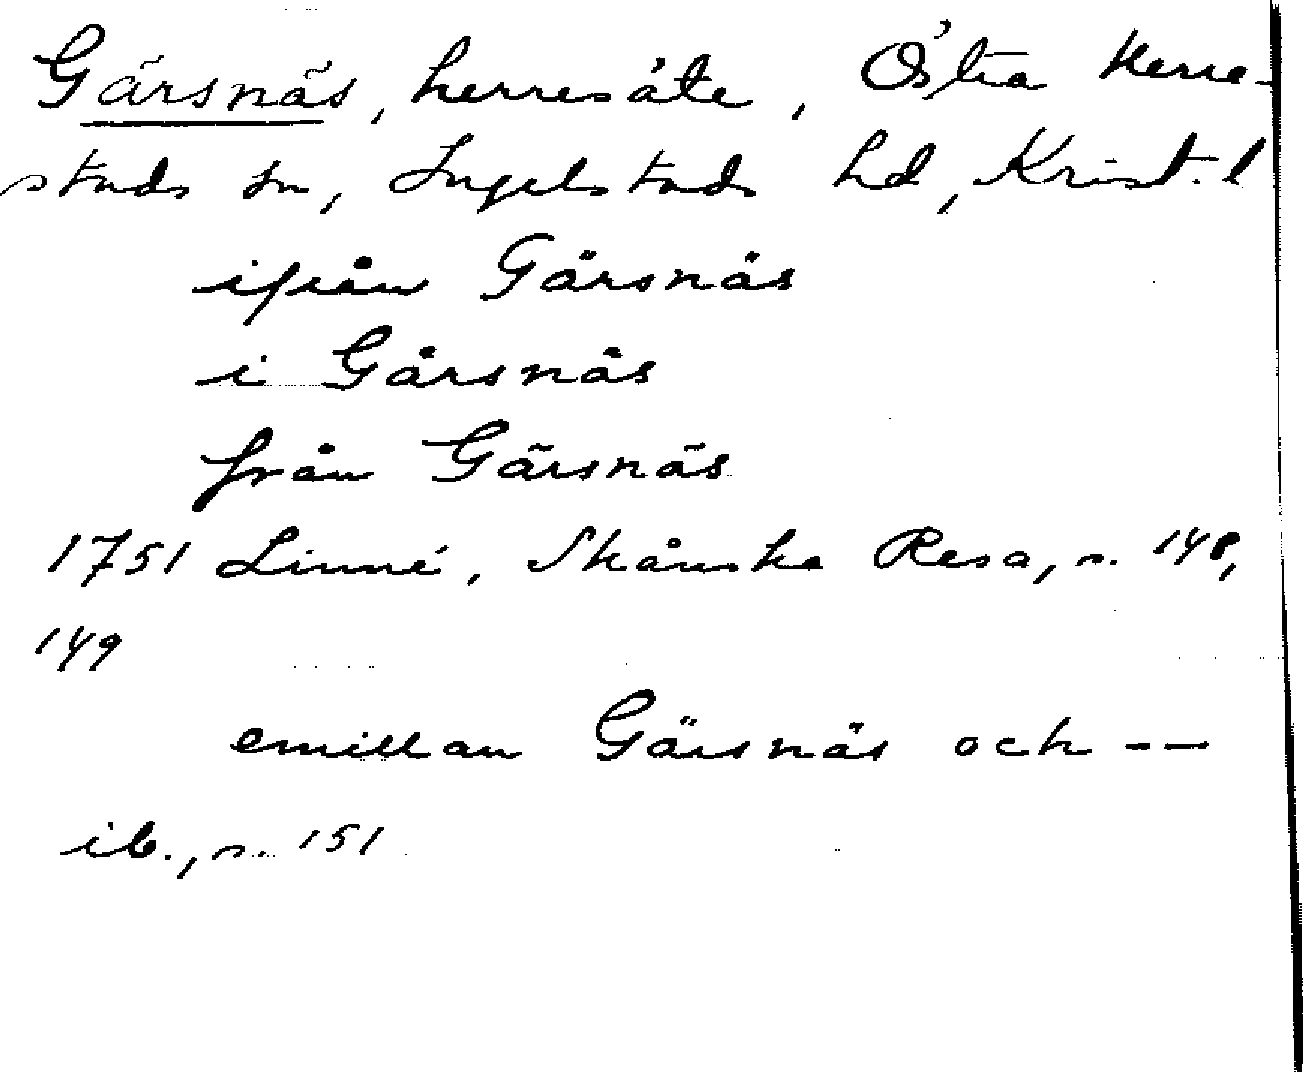 Gärsnäs, herresäte, Östra Herre-
stads sn, Ingelstads hd, Krist. l
ifrån Gärsnäs
i Gårsnås
från Gärsnäs
1751 Linné, Skånska Resa, s. 148,
149
emillan Gärsnäs och --
ib., s. 151